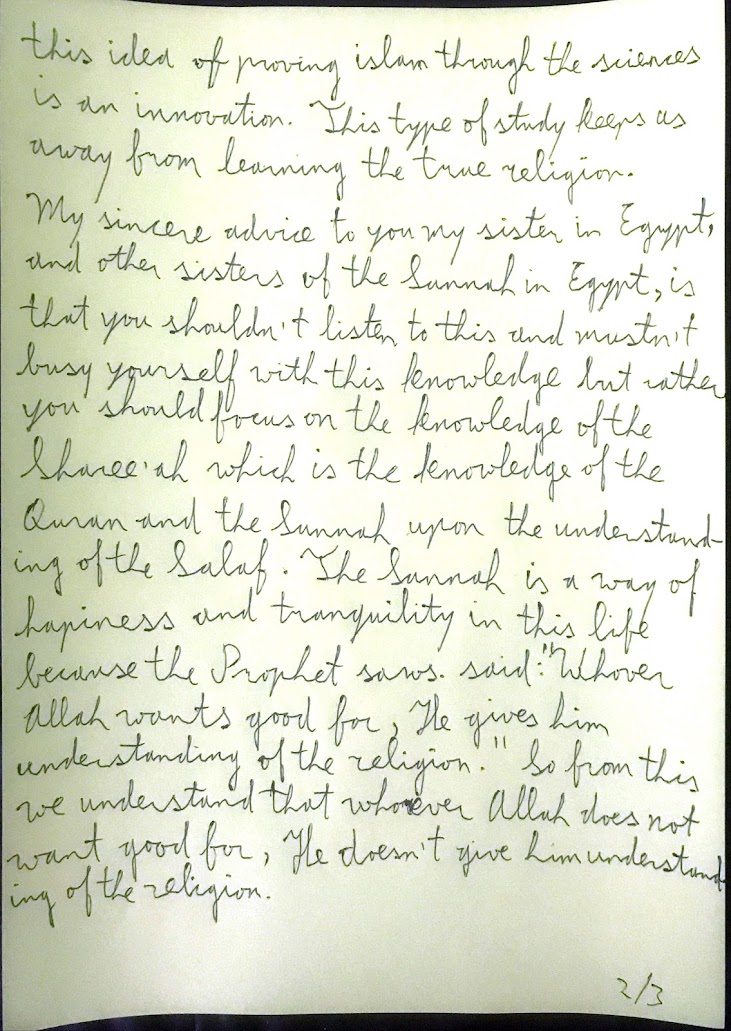 this idea of proving islam through the sciences
is an innovation. This type of study keeps us
away from learning the true religion.
My sincere advice to you my sister in Egypt,
and other sisters of the Sunnah in Egypt, is
that you shouldn't listen to this and mustn't
busy yourself with this knowledge but rather
you should focus on the knowledge of the
Sharee'ah which is the knowledge of the
Quran and the Sunnah upon the understand-
ing of the Salaf. The Sunnah is a way of
hapiness and tranquility in this life
because the Prophet saws. said: "Whover
Allah wants good for, He gives him
understanding of the religion." So from this
we understand that whoever Allah does not
want good for, He doesn't give him understand-
ing of the religion.
2/3